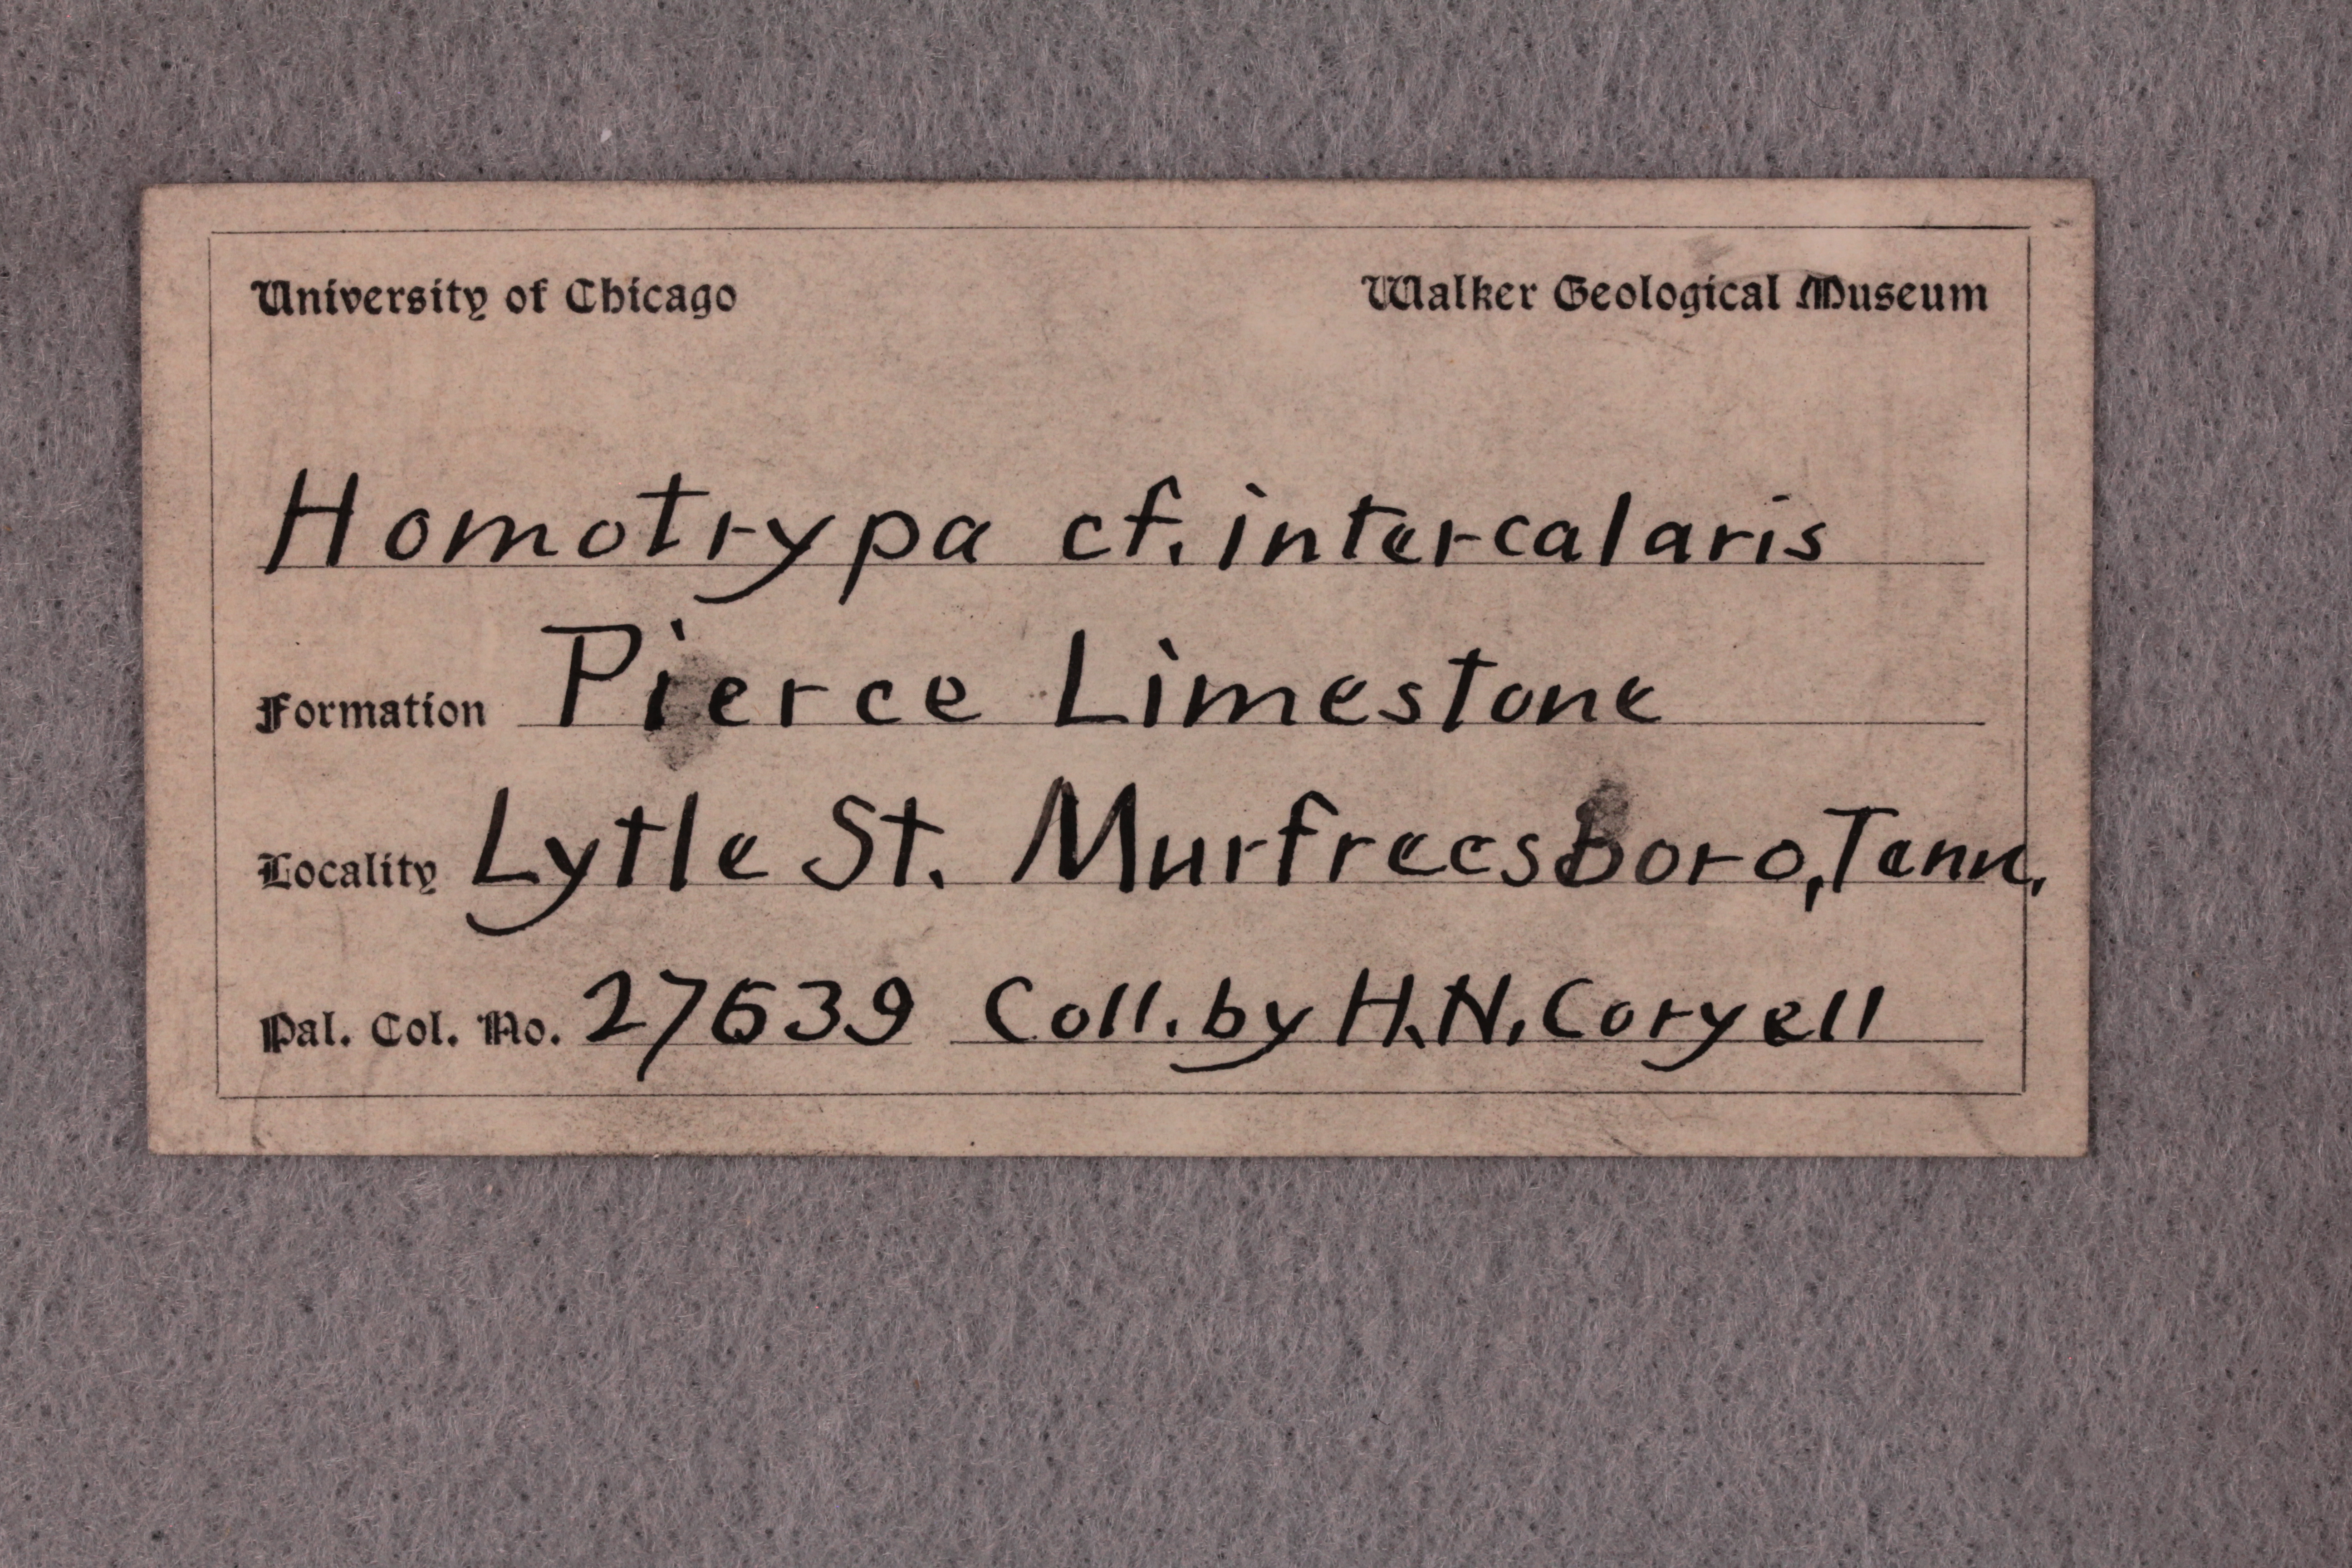 University of Chicago Walker Geological Museum
Homotrypa cf. intercalaris
Formation Pierce Limestone
Locality Lytle St. Murfreesboro, Tenn.
Pal. Col. No. 27639 Coll. by H.N. Coryell